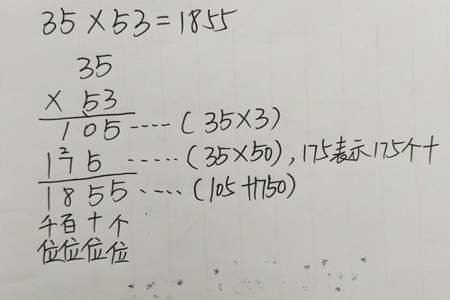 35×53=1855
35
× 53
105 ---- (35×3)
175 ----- (35×50),175表示175个十
1855 ---- (105+1750)
千百十个
位位位位